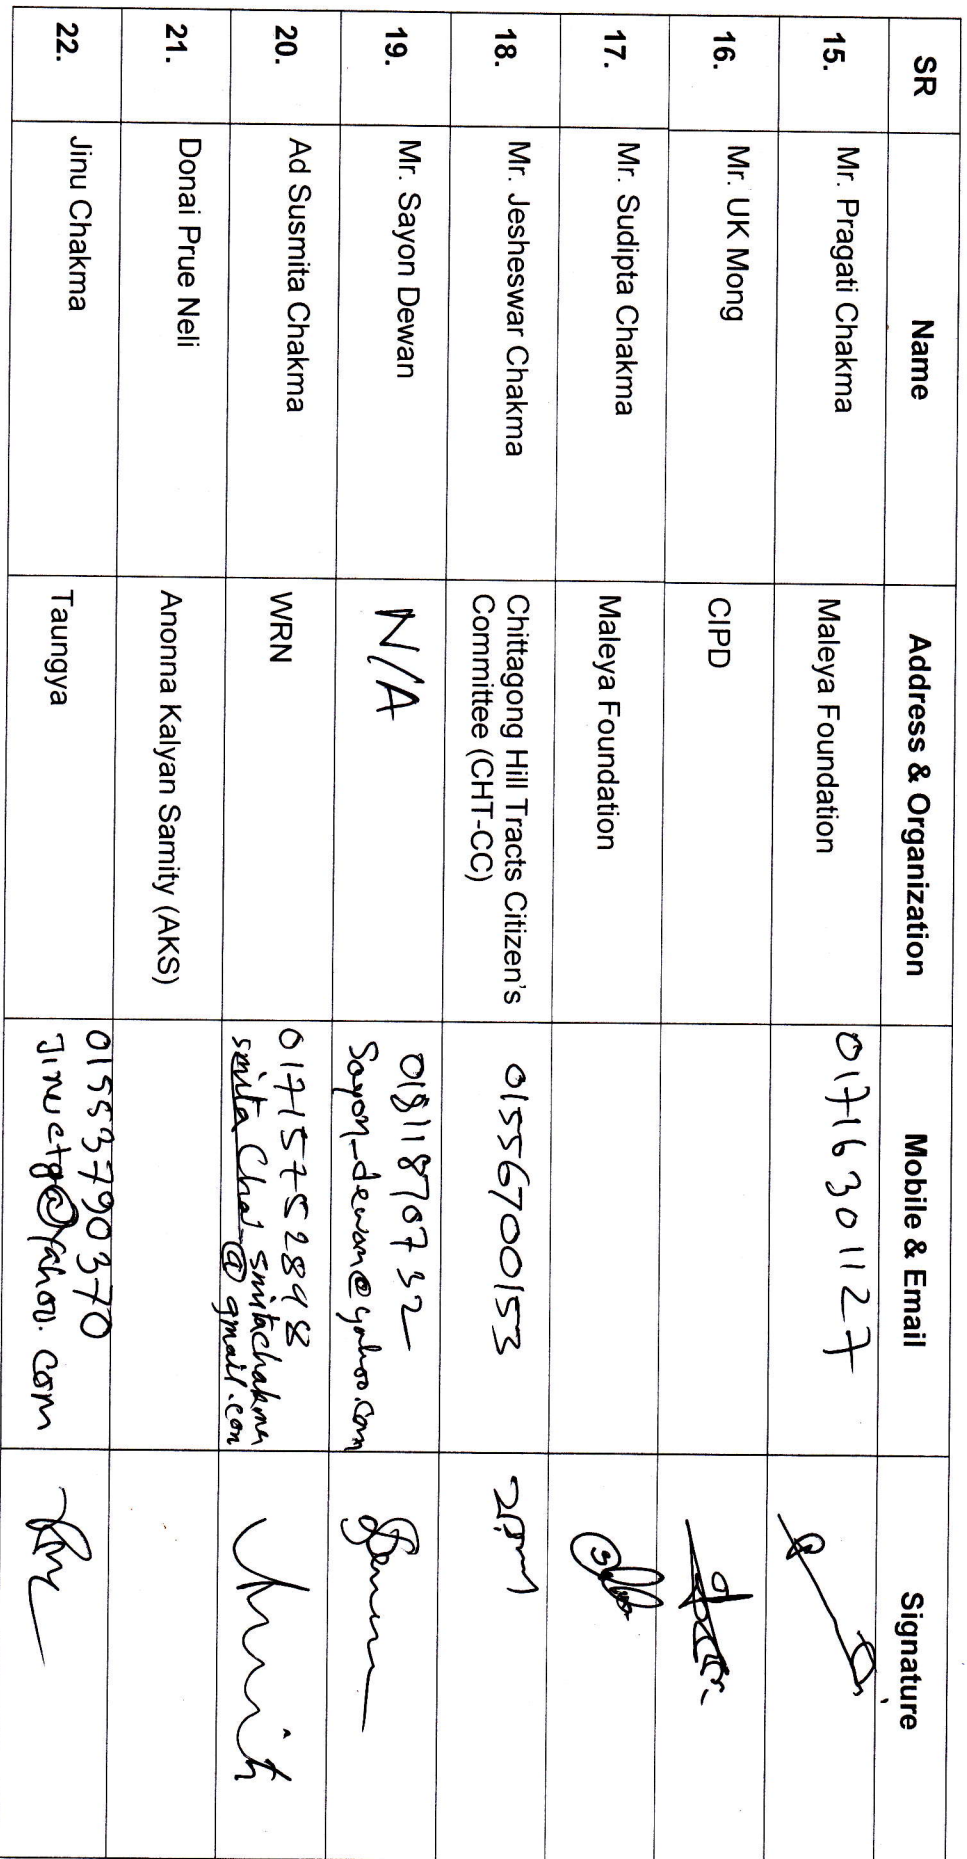 SR Name Address & Organization Mobile & Email Signature
15. Mr. Pragati Chakma Maleya Foundation 01716301127
16. Mr. UK Mong CIPD
17. Mr. Sudipta Chakma Maleya Foundation
18. Mr. Jesheswar Chakma Chittagong Hill Tracts Citizen's 01556700153
Committee (CHT-CC)
19. Mr. Sayon Dewan N/A 01811870732
Sayon_dewan@yahoo.com
20. Ad Susmita Chakma WRN 01715752898
smitachakma
@gmail.com
21. Donai Prue Neli Anonna Kalyan Samity (AKS)
22. Jinu Chakma Taungya 01553790370
Jinuctg@yahoo.com